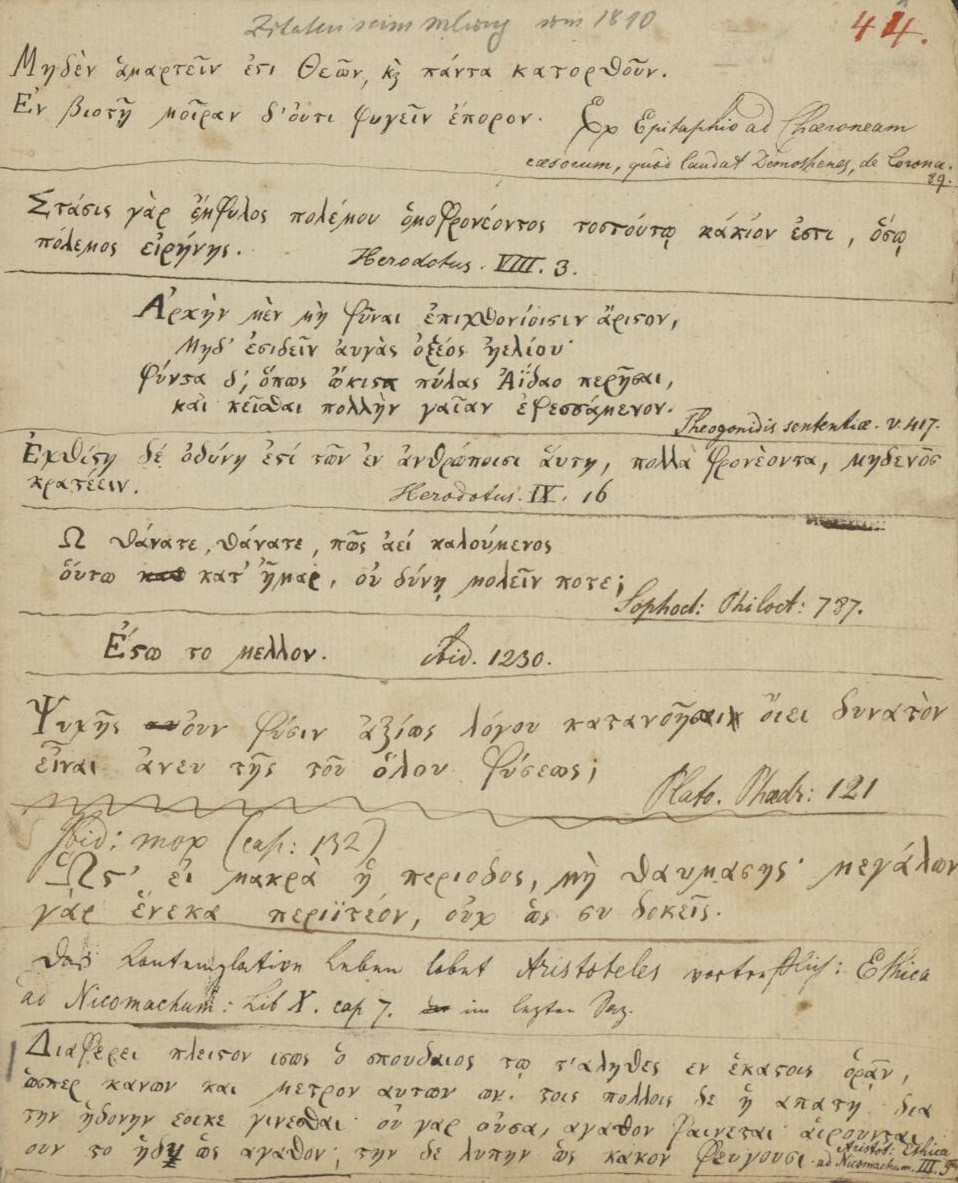 Zitatensammlung um 1810
44.
Μηδὲν ἁμαρτεῖν ἐϛι Θεῶν, κ̀ πάντα κατορθοῦν.
Ἐν βιοτῇ μοῖραν δ' ὀυτι φυγεῖν ἐπορον. Ex Epitaphio ad Chæroneam
cæsorum, quod laudat Demosthenes, de Corona.
89.
Στάσις γὰρ ἔμφυλος πολέμου ὁμοφρονέοντος τοσȣ́τῳ κάκίον ἐστι, ὅσῳ
πόλεμος εἰρήνης. Herodotus. VIII. 3.
Ἀρχὴν μὲν μὴ φῦναι ἐπιχθονίοισιν ἄριϛον,
Μηδ' ἐσιδεῖν ἀυγὰς ὀξέος ἠελίου·
Φύντα δ', ὅπως ὤκιϛα πύλας Ἀΐδαο περῆσαι,
καὶ κεῖσθαι πολλὴν γαῖαν ἐφεσσάμενον.
Theogonidis sententiæ. v. 417.
Ἐχθίϛη δέ ὀδύνη ἐϛί τῶν ἐν ἀνθρώποισι ἅυτη, πολλὰ φρονὲοντα, μηδενὸς
κρατέειν. Herodotus. IX. 16
Ω θάνατε, θάνατε, πῶς ἀεί καλούμενος
ὅυτω κατ' ἦμαρ, ὀυ δύνῃ μολεῖν ποτε;
Sophocl: Philoct: 787.
Ἐϛω το μελλον. ibid. 1230.
Ψυχῆς ὀυν φύσιν ἀξίως λόγου κατανοῆσαι ὄιει δυνατὸν
εἶναι ἀνευ τῆς τοῦ ὅλου φύσεως;
Plato. Phædr: 121
Ibid: mox (cap: 132)
Ὥϛ' ἐι μακρὰ ἡ περιοδος, μὴ θαυμασῃς· μεγάλων
γὰρ ἕνεκα περιϊτέον, ὀυχ ὡς συ δοκεῖς.
Das kontemplative Leben lobet Aristoteles vortrefflich: Ethica
ad Nicomachum: Lib X. cap 7. im lezten Saz.
Διαφερει πλειϛον ισως ὁ σπουδαιος τῳ τ'αληθες εν ἑκαϛοις ὁρᾷν,
ὡσπερ κανων και μετρον αυτων ων. τοις πολλοις δε ἡ απατη δια
την ἡδονην εοικε γινεσθαι· ὀυ γαρ ὀυσα, αγαθον φαινεται· ἁιρουνται
ουν το ἡδυ ὡς αγαθον; την δε λυπην ὡς κακον φευγουσι.
Aristot: Ethica
ad Nicomachum. III.